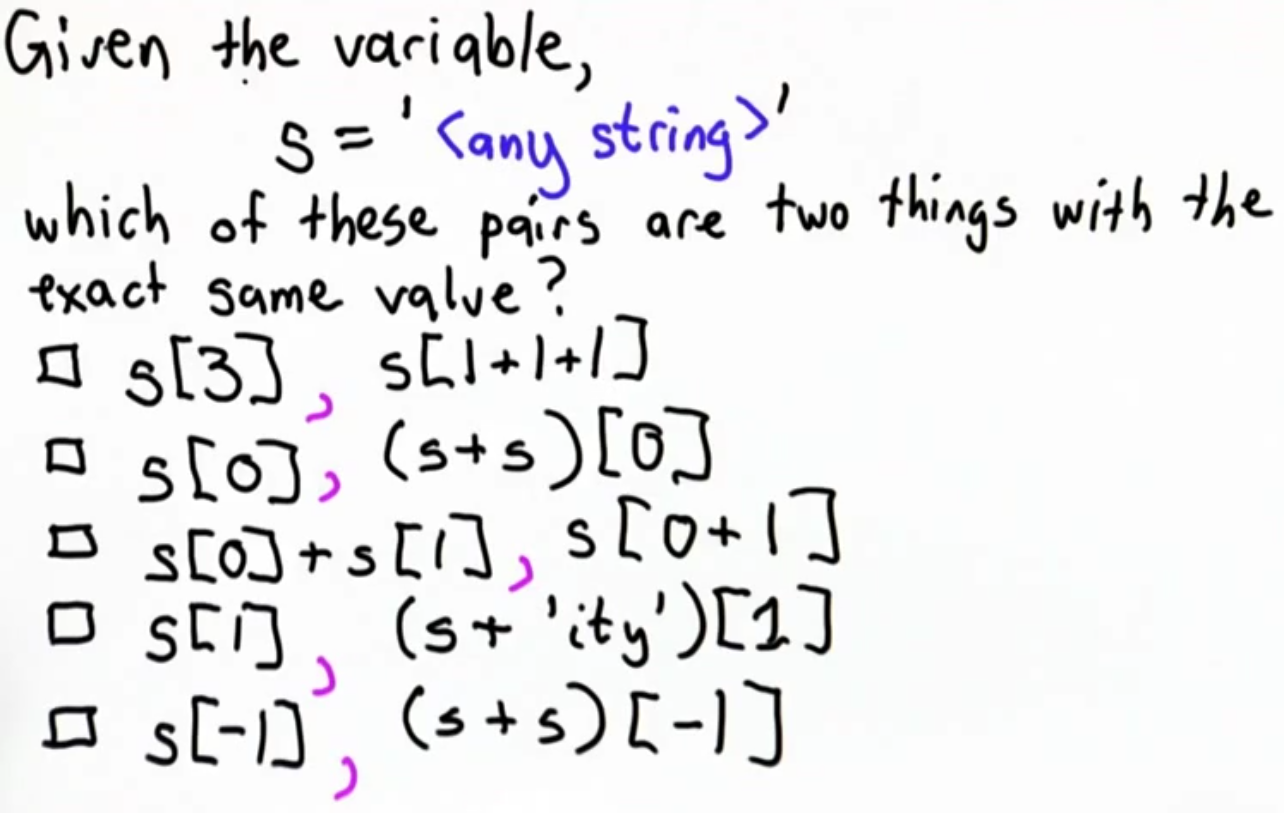 Given the variable,
s = '<any string>'
which of these pairs are two things with the
exact same value?
s[3], s[1+1+1]
s[0], (s+s)[0]
s[0]+s[1], s[0+1]
s[1], (s+'ity')[1]
s[-1], (s+s)[-1]